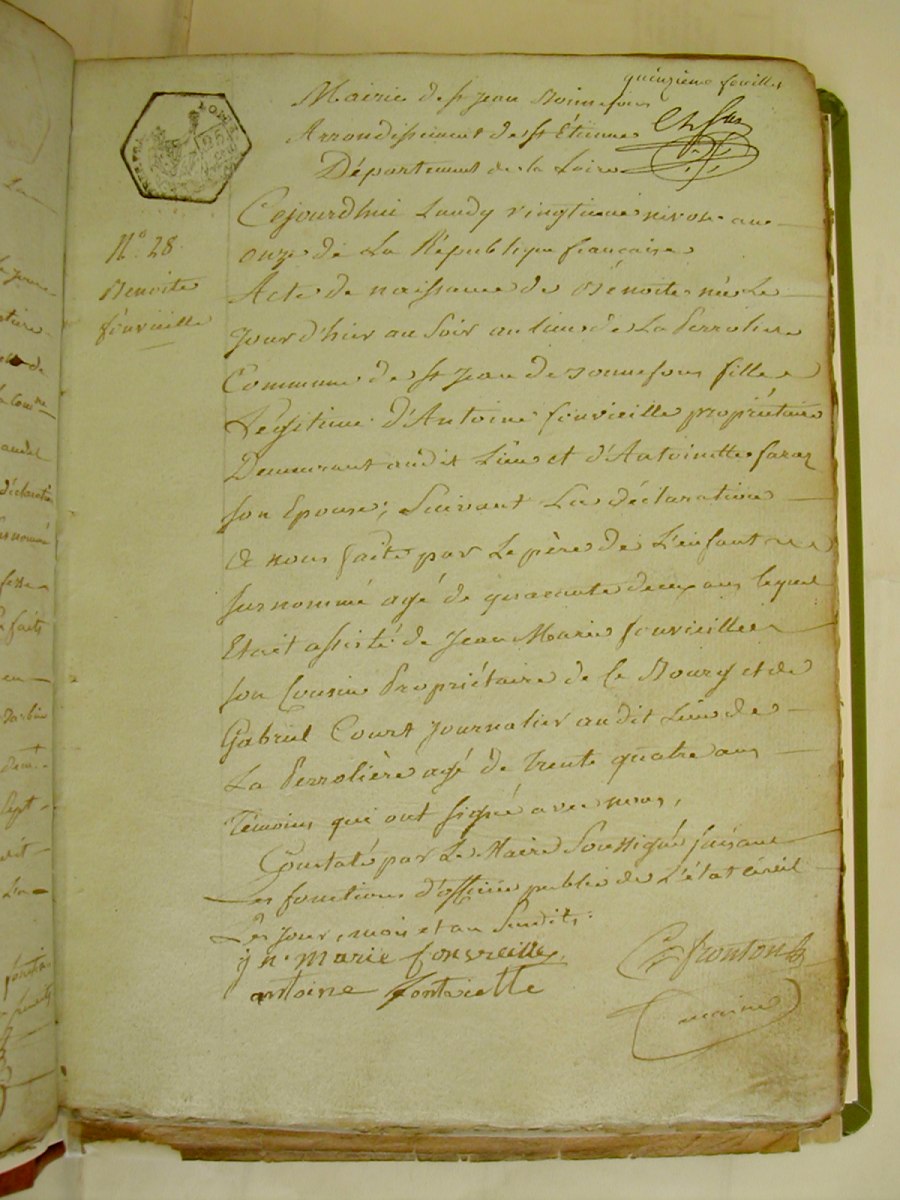 quinzieme feuillet
Mairie de St Jean Bonnefons
Arrondissement de St Etienne
Département de la Loire
Cejourd'hui Lundy vingtieme nivose an
onze de La République française
N.o 28
Benoite
fonvieille
Acte de naissance de Bénoite née Le
jour d'hier au Soir au lieu de La Perroliere
Commune de St Jean de Bonnefons fille
Légitime d'Antoine fonvieille propriétaire
Demeurant audit Lieu et d'Antoinette faraz
son Epouse; Suivant La déclaration
a nous faite par Le père de L'enfant
susnommé agé de quarante deux ans lequel
Etait assisté de Jean Marie fonvieille
son Cousin Propriétaire de ce Bourg et de
Gabriel Court Journalier audit Lieu de
La Perrolière agé de trente quatre ans
Témoins qui ont signé avec nous,
Constaté par Le Maire Soussigné faisant
Les fonctions d'officier public de L'état civil
Les jour, mois et an Susdits.
jn. marie fonvieille,
antoine fontvielle
fronton
maire